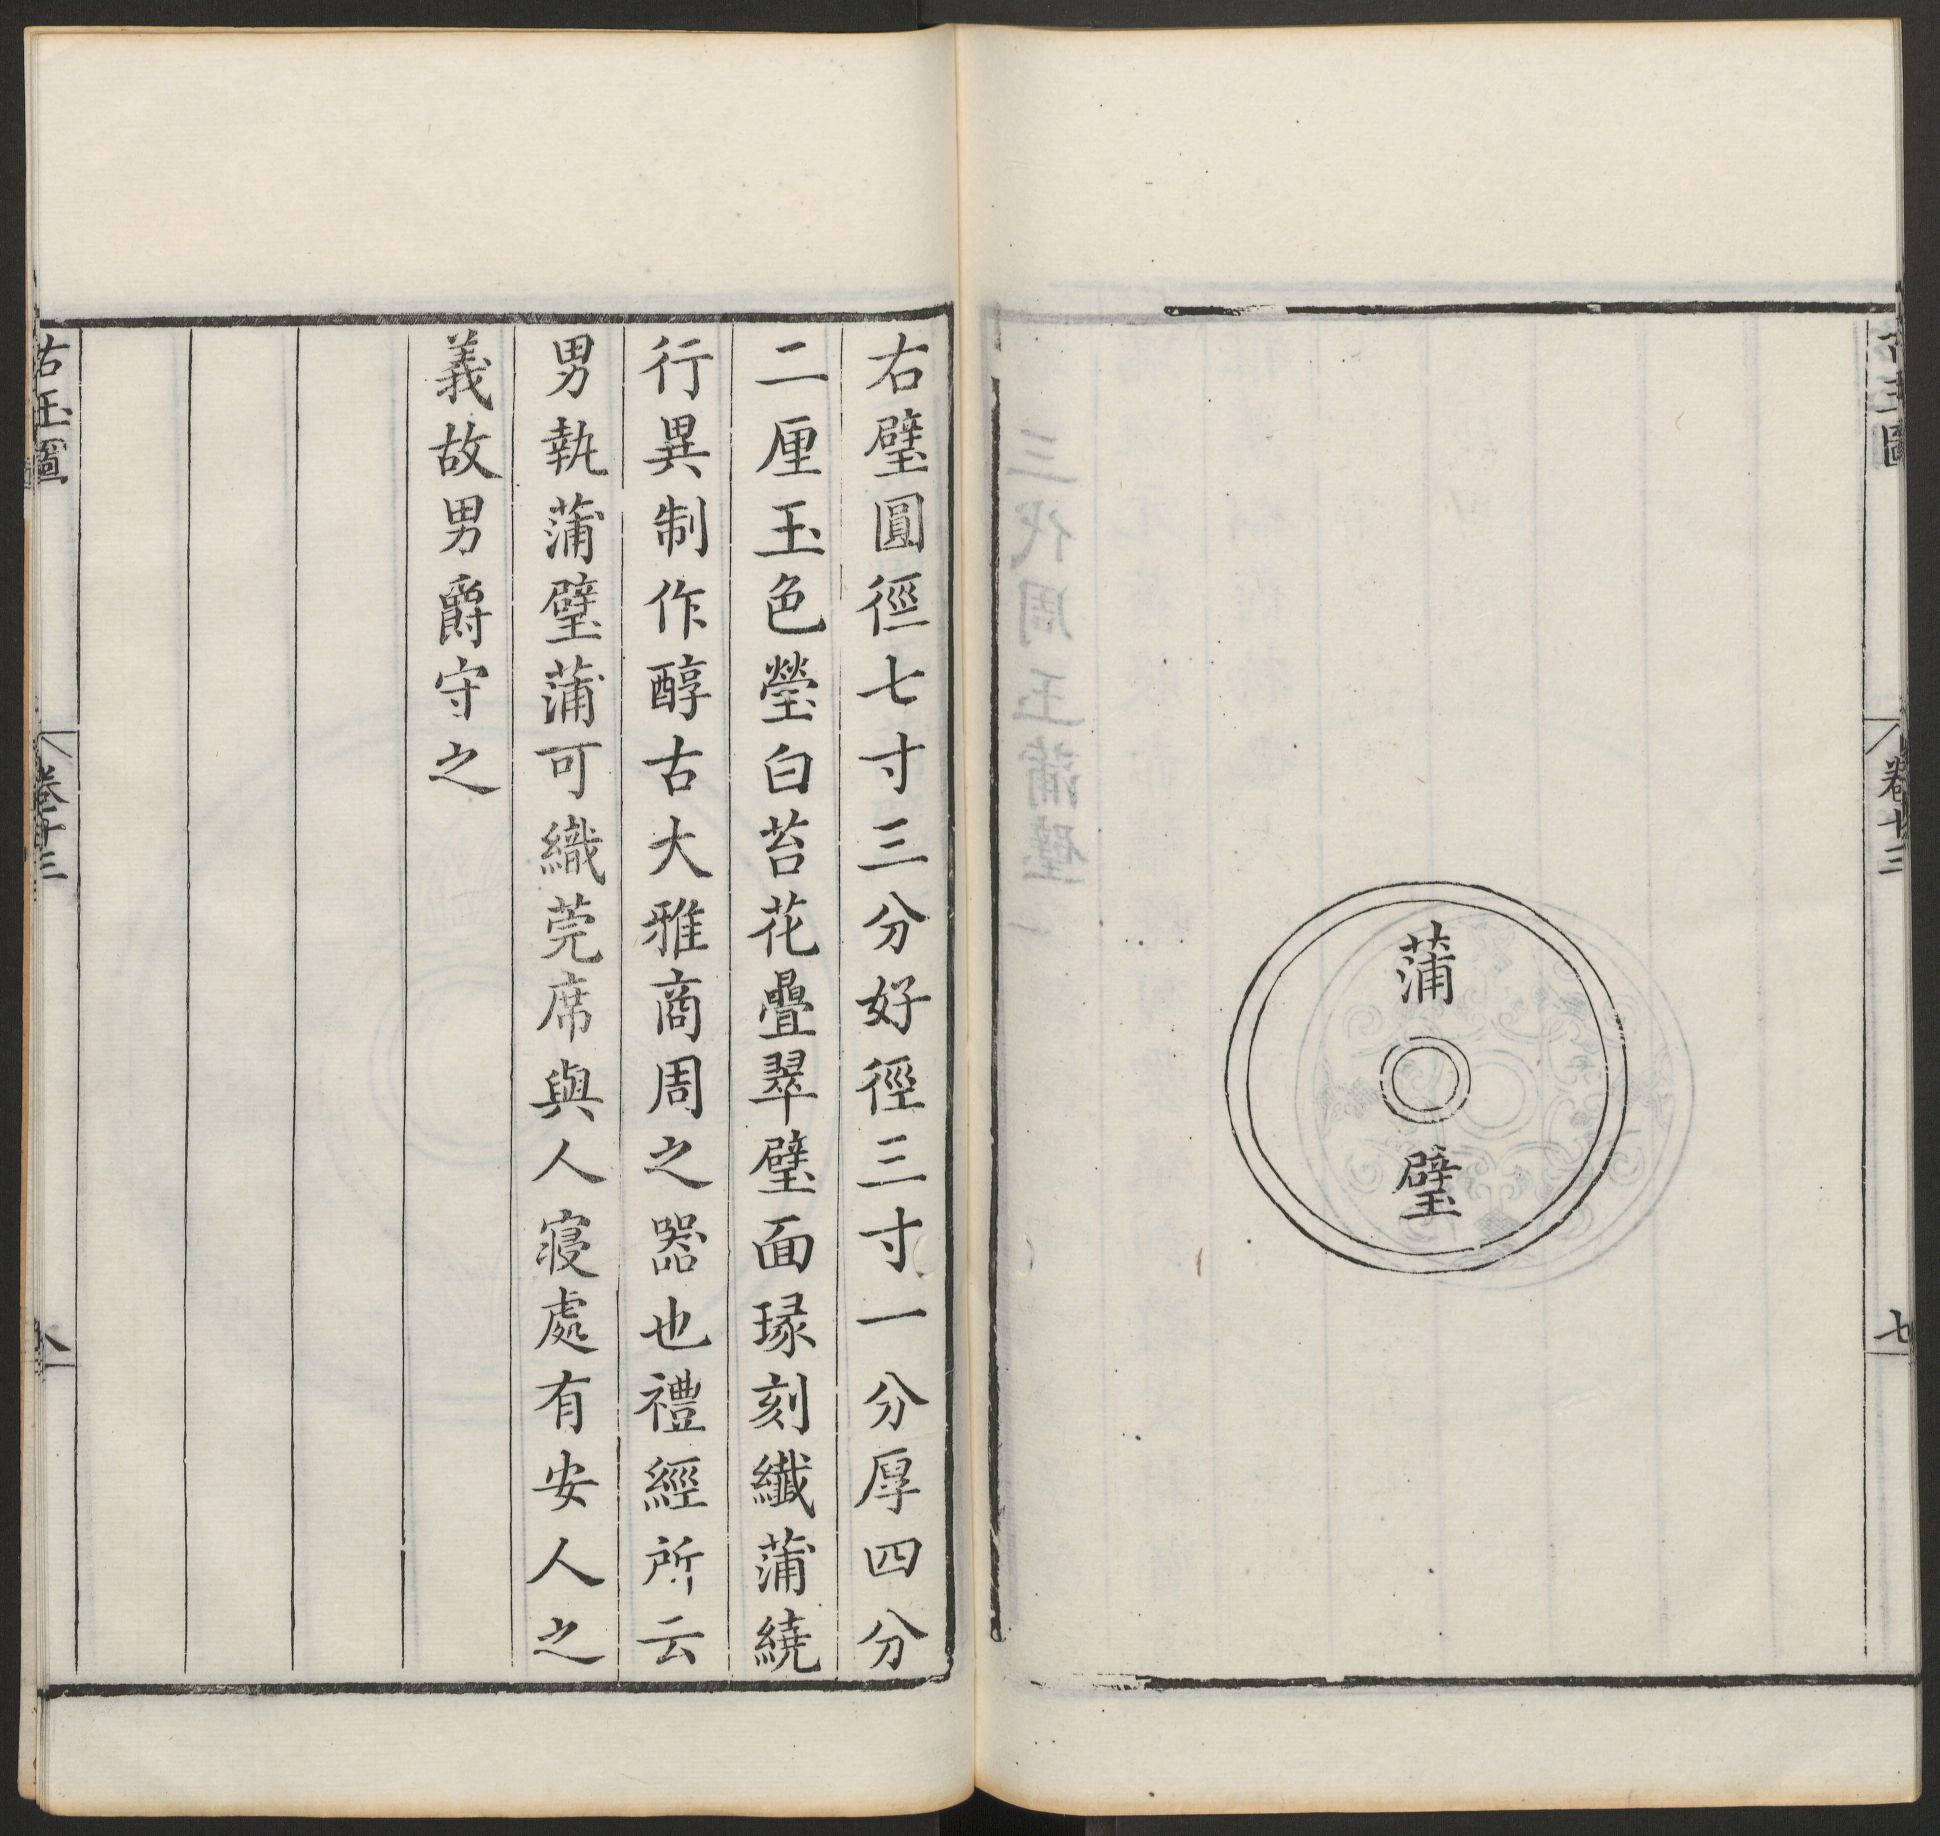 古玉圖
卷十三
七
蒲
璧
右璧圓徑七寸三分好徑三寸一分厚四分
二厘玉色瑩白苔花疊翠璧面琭刻纖蒲繞
行異制作醇古大雅商周之器也禮經所云
男執蒲璧蒲可織莞席與人寢處有安人之
義故男爵守之
古玉圖
卷十三
八